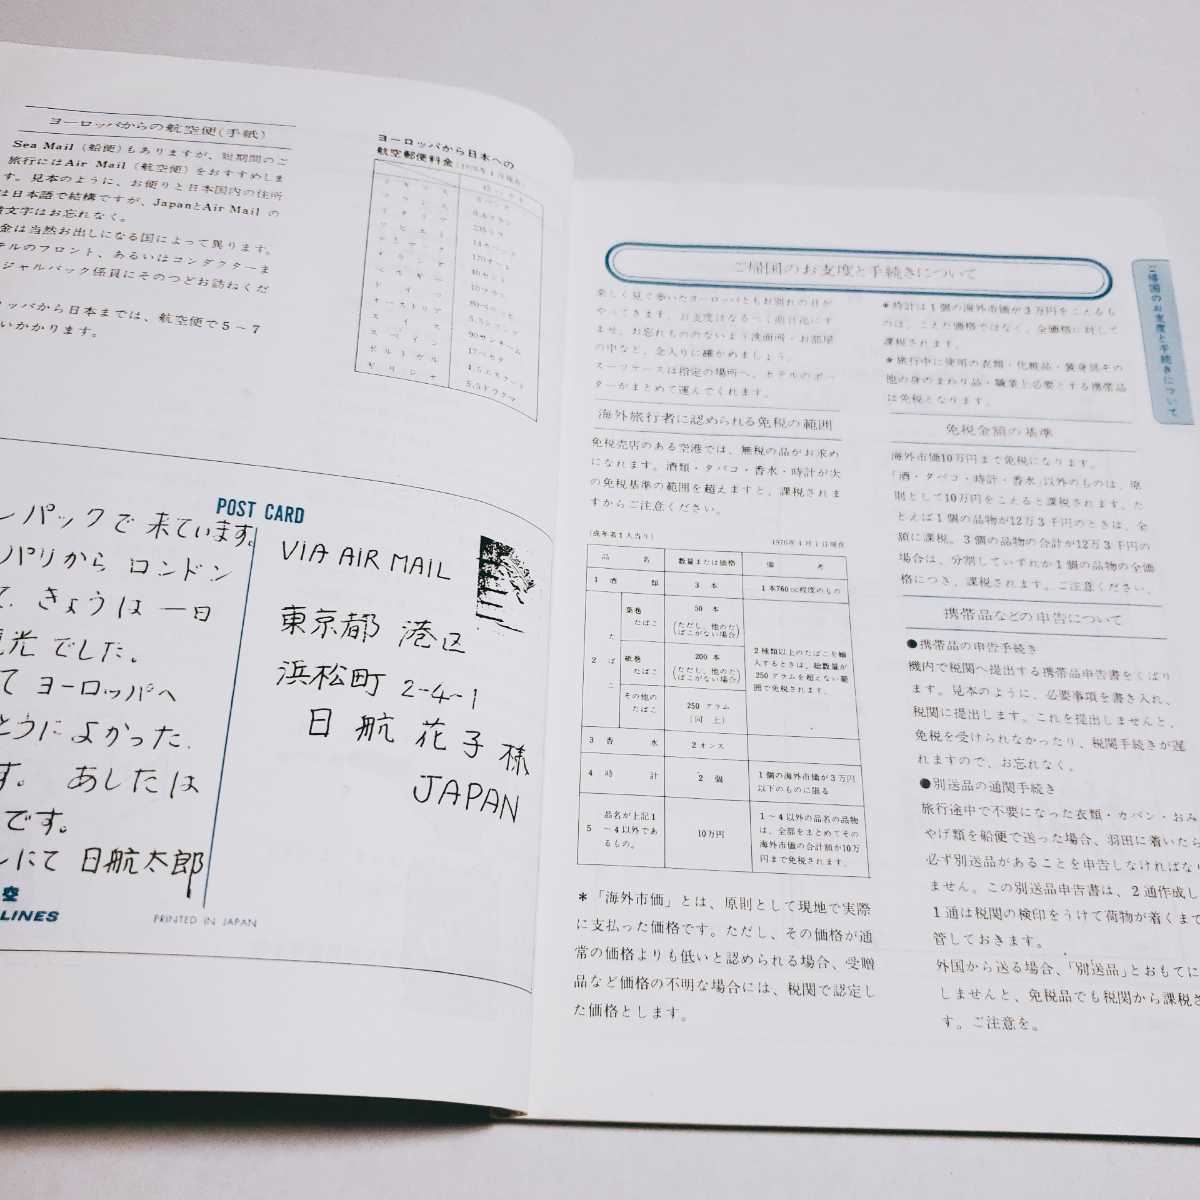 ヨーロッパからの航空便(手紙)
Sea Mail (船便)もありますが、短期間のご
旅行にはAir Mail (航空便)をおすすめしま
す。見本のように、お便りと日本国内の住所
は日本語で結構ですが、JapanとAir Mail の
文字はお忘れなく。
金は当然お出しになる国によって異ります。
テルのフロント、あるいはコンダクターま
ジャルパック係員にそのつどお訪ねくだ
ロッパから日本までは、航空便で5～7
いかかります。
ヨーロッパから日本への
航空郵便料金(1976年4月現在)
イギリス
フランス
イタリア
スイス
スペイン
ポルトガル
ギリシャ
POST CARD
ルパックで来ています。
パリから ロンドン
て、きょうは一日
観光でした。
て ヨーロッパへ
とうによかった.
す。 あしたは
です。
ルにて 日航太郎
VIA AIR MAIL
東京都 港区
浜松町 2-4-1
日航花子様
JAPAN
空
LINES
PRINTED IN JAPAN
ご帰国のお支度と手続きについて
楽しく見て歩いたヨーロッパともお別れの日が
やってきます。お支度はなるべく前日迄にす
ませ、お忘れもののないよう洗面所・お部屋
の中など、念入りに確かめましょう。
スーツケースは指定の場所へ。ホテルのポー
ターがまとめて運んでくれます。
海外旅行者に認められる免税の範囲
免税売店のある空港では、無税の品がお求め
になれます。酒類・タバコ・香水・時計が次
の免税基準の範囲を超えますと、課税されま
すからご注意ください。
(成年者1人当り) 1976年4月1日現在
品名 数量または価格 備考
1 酒類 3本 1本760cc程度のもの
2 たばこ
葉巻たばこ 50本 (ただし、他のたばこがない場合)
紙巻たばこ 200本 (ただし、他のたばこがない場合)
その他のたばこ 250グラム (同上)
2種類以上のたばこを輸
入するときは、総数量が
250グラムを超えない範
囲で免税されます。
3 香水 2オンス
4 時計 2個 1個の海外市価が3万円
以下のものに限る
5 品名が上記1
～4以外であ
るもの。 10万円
1～4以外の品名の品物
は、全部をまとめてその
海外市価の合計額が10万
円まで免税されます。
＊「海外市価」とは、原則として現地で実際
に支払った価格です。ただし、その価格が通
常の価格よりも低いと認められる場合、受贈
品など価格の不明な場合には、税関で認定し
た価格とします。
★時計は1個の海外市価が3万円をこえるも
のは、こえた価格ではなく、全価格に対して
課税されます。
★旅行中に使用の衣類・化粧品・装身具その
他の身のまわり品・職業上必要とする携帯品
は免税となります。
免税金額の基準
海外市価10万円まで免税になります。
「酒・タバコ・時計・香水」以外のものは、原
則として10万円をこえると課税されます。た
とえば1個の品物が12万3千円のときは、全
額に課税。3個の品物の合計が12万3千円の
場合は、分割していずれか1個の品物の全価
格につき、課税されます。ご注意ください。
携帯品などの申告について
●携帯品の申告手続き
機内で税関へ提出する携帯品申告書をくばり
ます。見本のように、必要事項を書き入れ、
税関に提出します。これを提出しませんと、
免税を受けられなかったり、税関手続きが遅
れますので、お忘れなく。
●別送品の通関手続き
旅行途中で不要になった衣類・カバン・おみ
やげ類を船便で送った場合、羽田に着いたら
必ず別送品があることを申告しなければなり
ません。この別送品申告書は、2通作成し
1通は税関の検印をうけて荷物が着くまで
管しておきます。
外国から送る場合、「別送品」とおもてに
しませんと、免税品でも税関から課税さ
す。ご注意を。
ご帰国のお支度と手続きについて